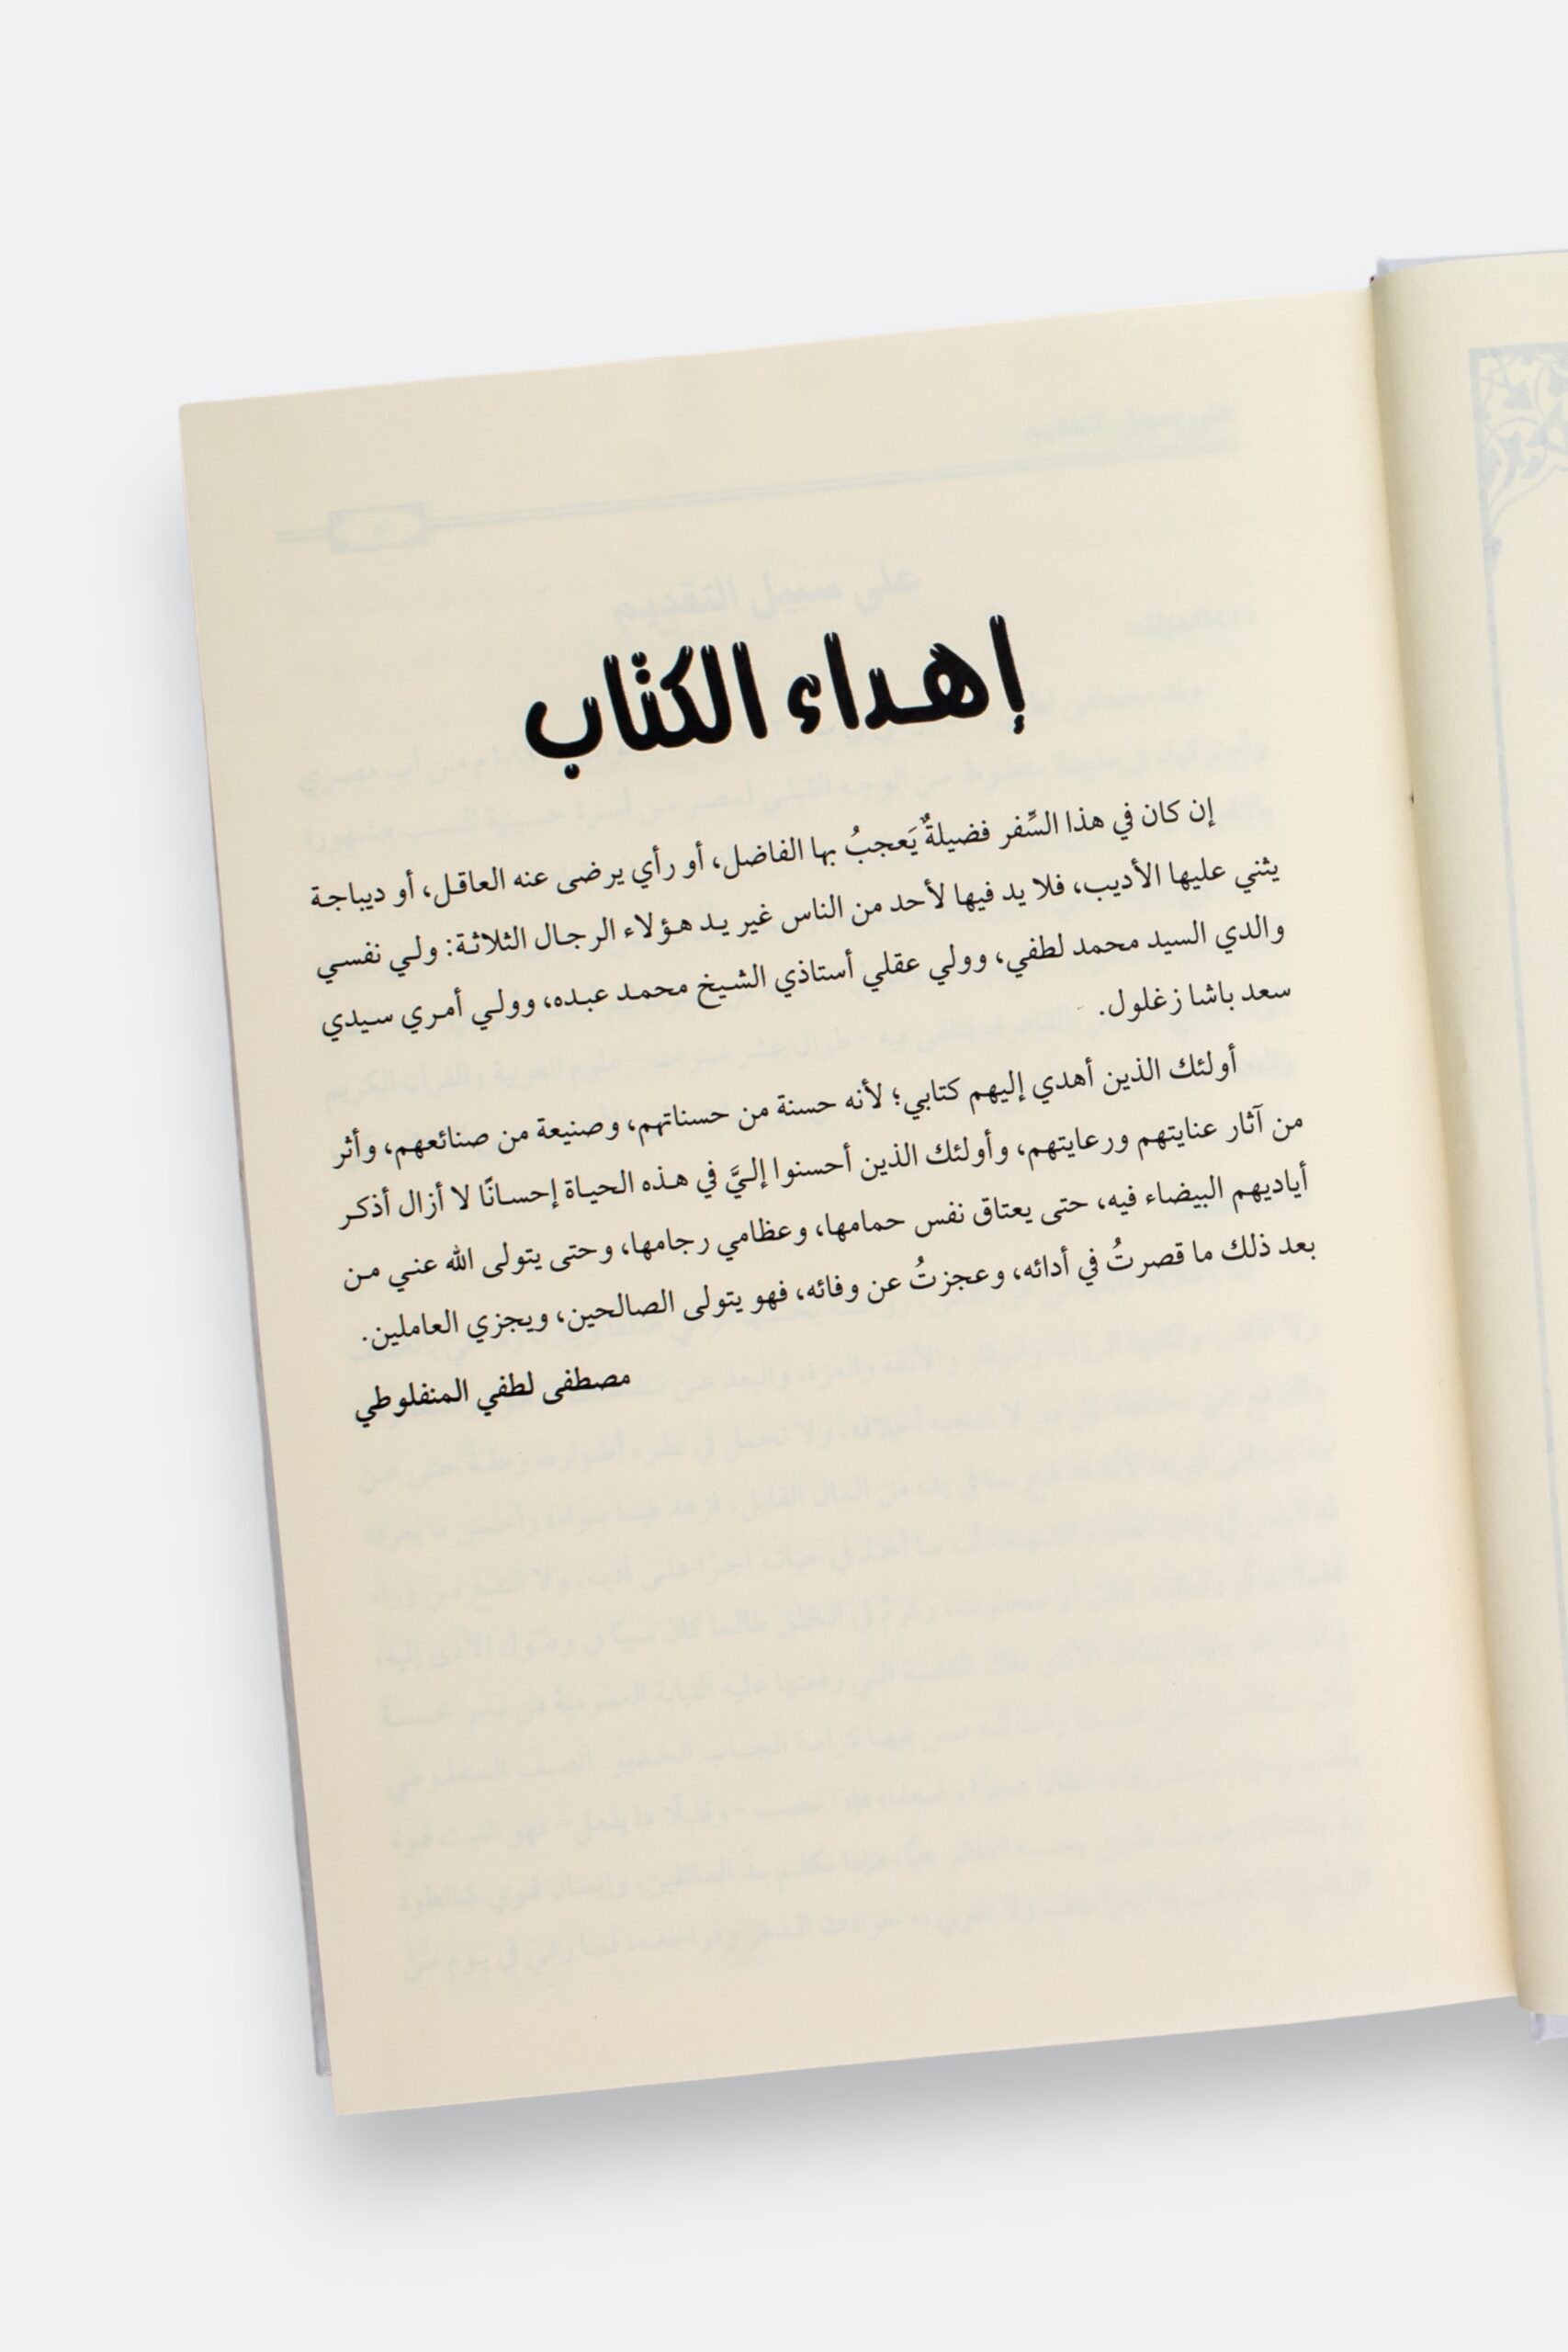 إهداء الكتاب
إن كان في هذا السِّفر فضيلةٌ يَعجبُ بها الفاضل، أو رأي يرضى عنه العاقل، أو ديباجة
يثني عليها الأديب، فلا يد فيها لأحد من الناس غير يد هؤلاء الرجال الثلاثة: ولي نفسي
والدي السيد محمد لطفي، وولي عقلي أستاذي الشيخ محمد عبده، وولي أمري سيدي
سعد باشا زغلول.
أولئك الذين أهدي إليهم كتابي؛ لأنه حسنة من حسناتهم، وصنيعة من صنائعهم، وأثر
من آثار عنايتهم ورعايتهم، وأولئك الذين أحسنوا إليَّ في هذه الحياة إحسانًا لا أزال أذكر
أياديهم البيضاء فيه، حتى يعتاق نفس حمامها، وعظامي رجامها، وحتى يتولى الله عني من
بعد ذلك ما قصرتُ في أدائه، وعجزتُ عن وفائه، فهو يتولى الصالحين، ويجزي العاملين.
مصطفى لطفي المنفلوطي